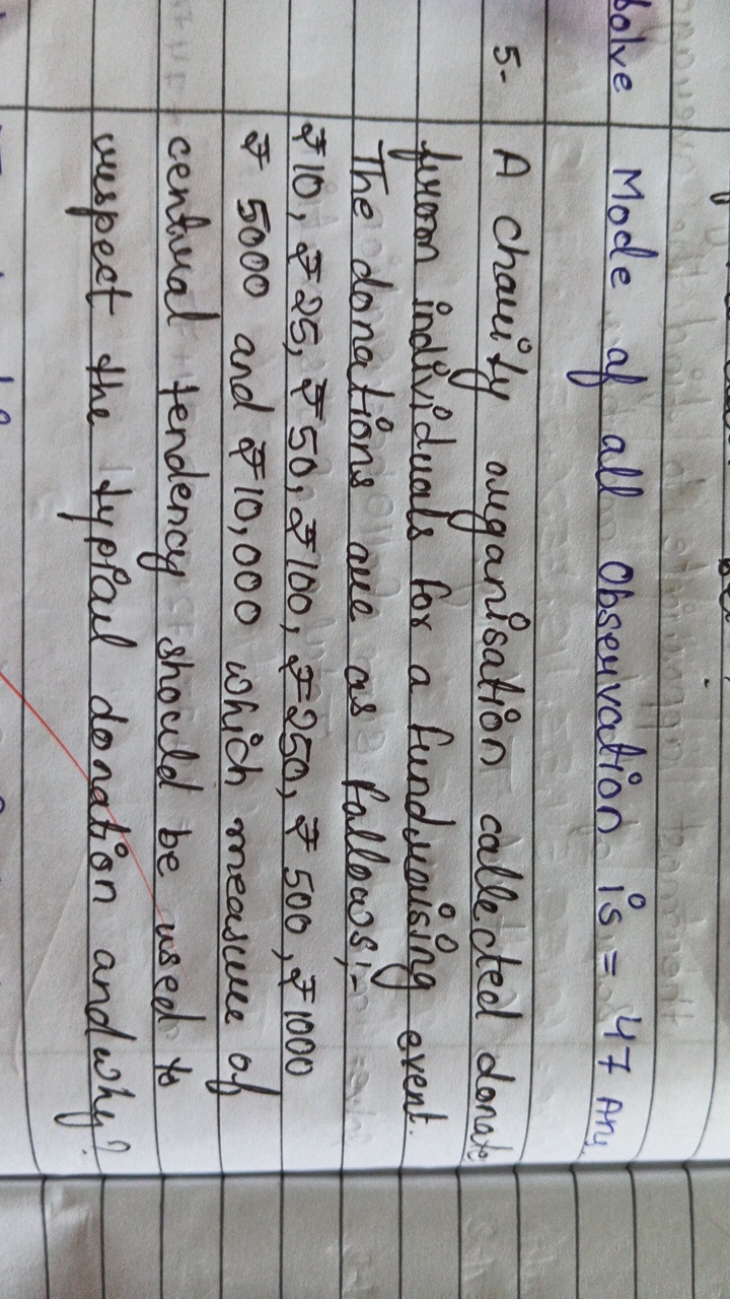 solve Mode of all Observation is = 47 Ans
5- A charity organisation collected donate
from individuals for a fundraising event.
The donations are as follows:-
₹10, ₹25, ₹50, ₹100, ₹250, ₹500, ₹1000
₹ 5000 and ₹10,000 which measure of
central tendency should be used to
respect the typical donation and why?